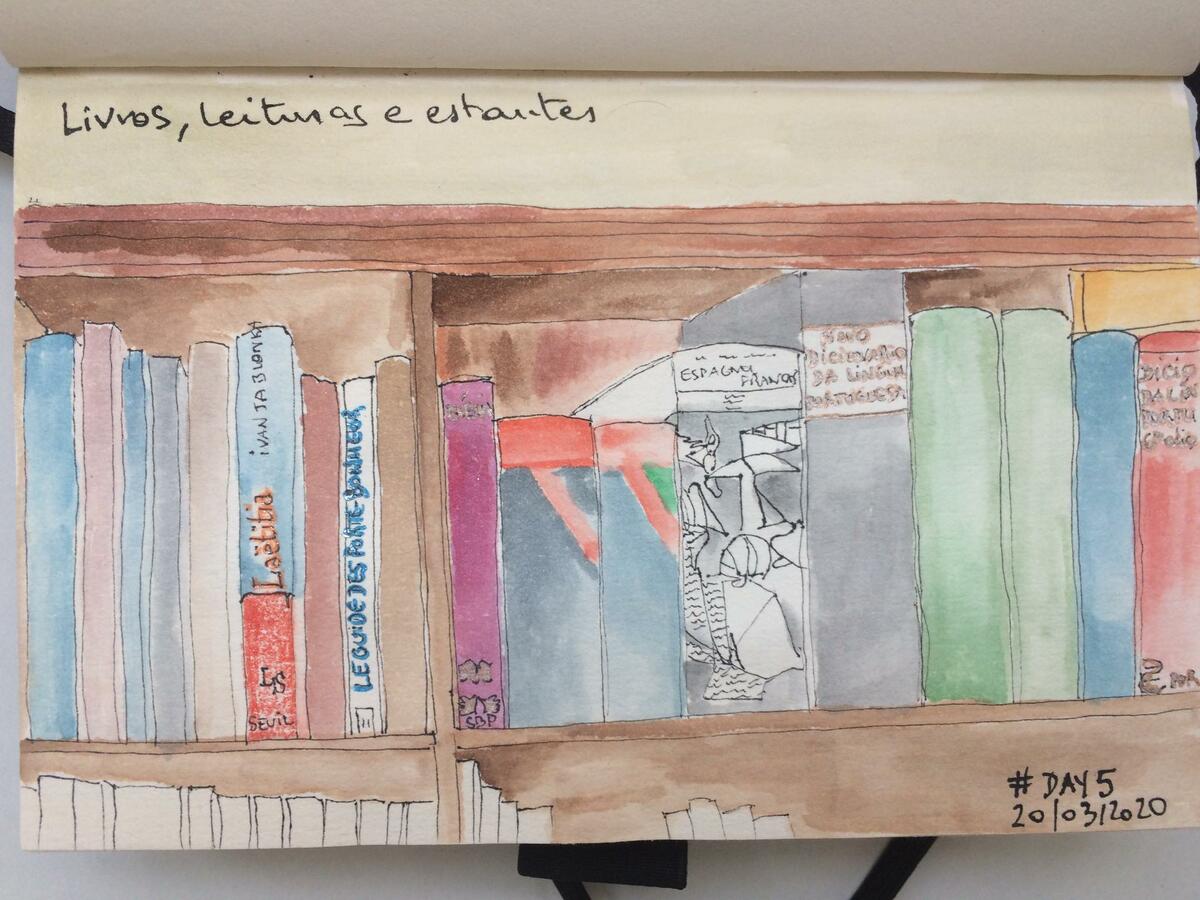 Livros, leituras e estantes
IVAN JABLONKA
Laëtitia
LS
SEUIL
LE GUIDE DES PORTE-BONHEUR
SBP
ESPAGNOL
FRANÇAIS
NOVO
DICIONÁRIO
DA LÍNGUA
PORTUGUESA
DICIO
DA LÍN
PORTU
GUES
# DAY 5
20/03/2020